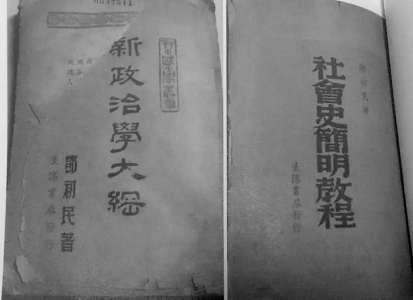 新政治學大綱
鄧初民著
生活書店發行
鄧初民著
社會史簡明教程
生活書店發行